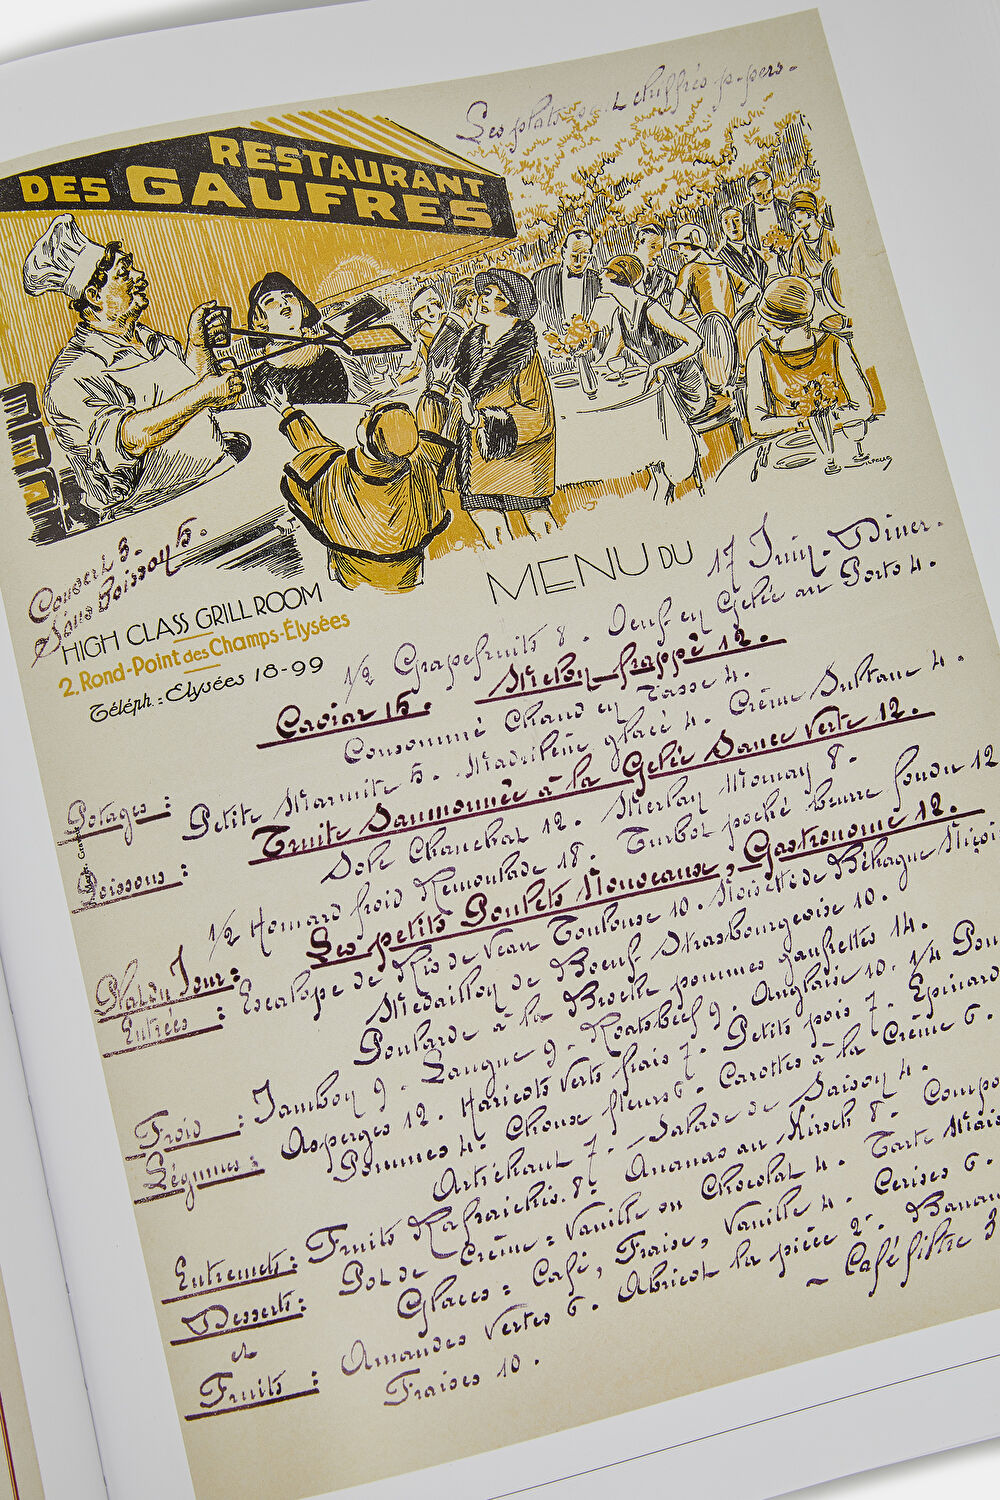 Les plats chiffrés p. pers.
RESTAURANT
DES GAUFRES
Couvert 3.
Sans Boisson 5.
HIGH CLASS GRILL ROOM
2. Rond-Point des Champs-Élysées
Téléph.: Elysées 18-99
MENU DU 17 Juin. Diner.
1/2 Grapefruits 8. Oeuf en Gelée au Porto 4.
Caviar 15. Melon frappé 12.
Consommé Chaud en Tasse 4.
Potages: Petite Marmite 5. Madrilène glacé 4. Crème Sultane 4.
Truite Saumonnée à la Gelée Sauce Verte 12.
Poissons: Sole Chauchat 12. Merlan Mornay 8.
1/2 Homard froid Remoulade 18. Turbot poché beurre fondu 12
Plat du Jour: Les petits Poulets Nouveaux, Gastronome 12.
Entrées: Escalope de Ris de Veau Toulouse 10. Noisette de Béhague Niçoi
Medaillon de Boeuf Strasbourgeoise 10.
Poularde à la Broche pommes gaufrettes 14.
Froid: Jambon 9. Langue 9. Roatsbeef 9. Anglaise 10. 1/4 Pou
Légumes: Asperges 12. Haricots verts frais 7. Petits pois 7. Epinard
Pommes 4. Choux fleurs 6. Carottes à la Crème 6.
Artichaut 7. Salade de Saison 4.
Entremets: Fruits Rafraichis. 8. Ananas au Kirsch 8. Compo
Desserts: Pot de Crème: Vanille ou Chocolat 4. Tarte Mais
et Glaces: Café, Fraise, Vanille 4. Cerises 6.
Fruits: Amandes Vertes 6. Abricot la pièce 2. Banan
Fraises 10. ~ Café filtre 3